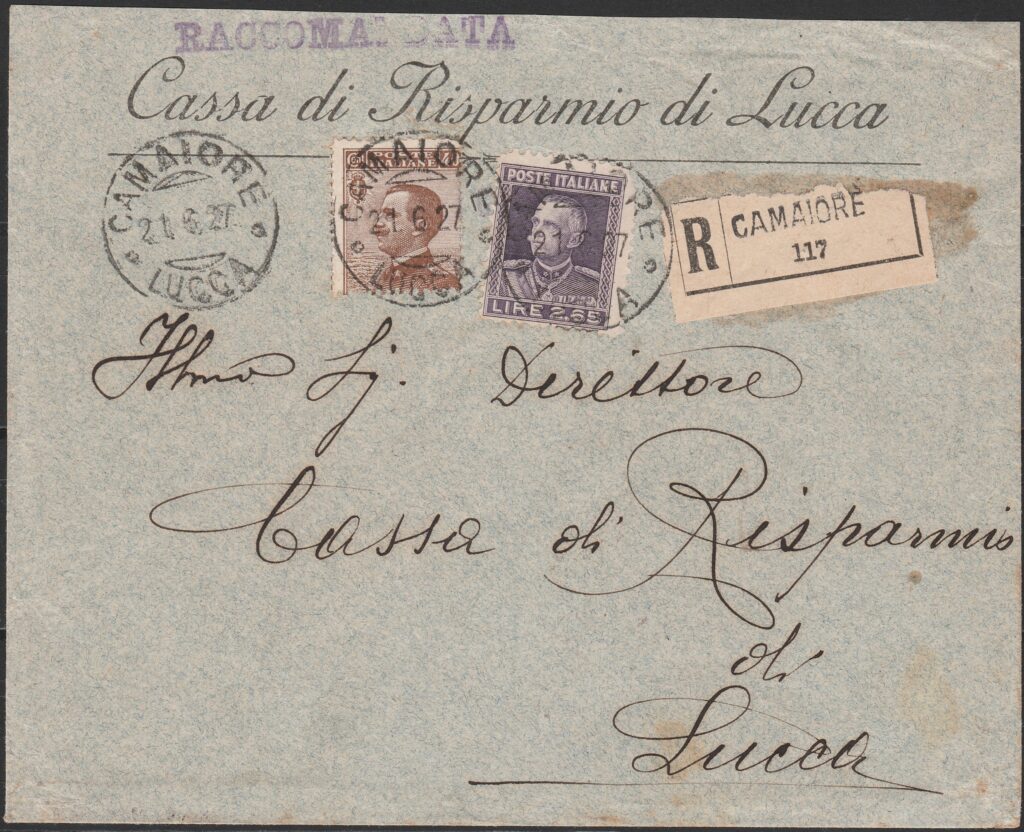 RACCOMANDATA
Cassa di Risparmio di Lucca
CAMAIORE
21.6.27
LUCCA
POSTE
ITALIANE
CAMAIORE
21.6.27
LUCCA
POSTE ITALIANE
LIRE 2.65
R CAMAIORE
117
Illmo Sig. Direttore
Cassa di Risparmio
di
Lucca